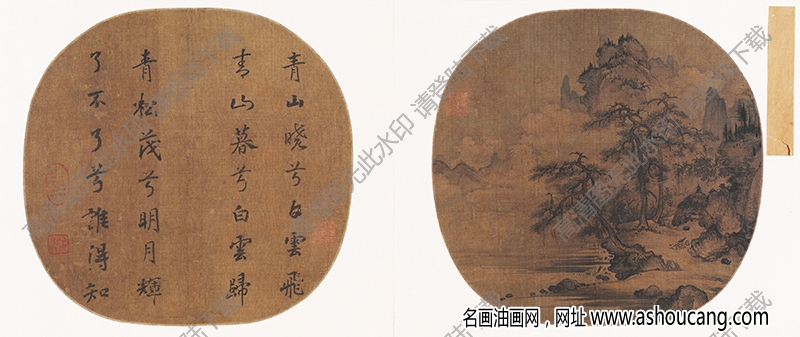 青山曉兮白雲飛
青山暮兮白雲歸
青松茂兮明月輝
了不了兮誰得知
名画油画网，网址 www.ashoucang.com